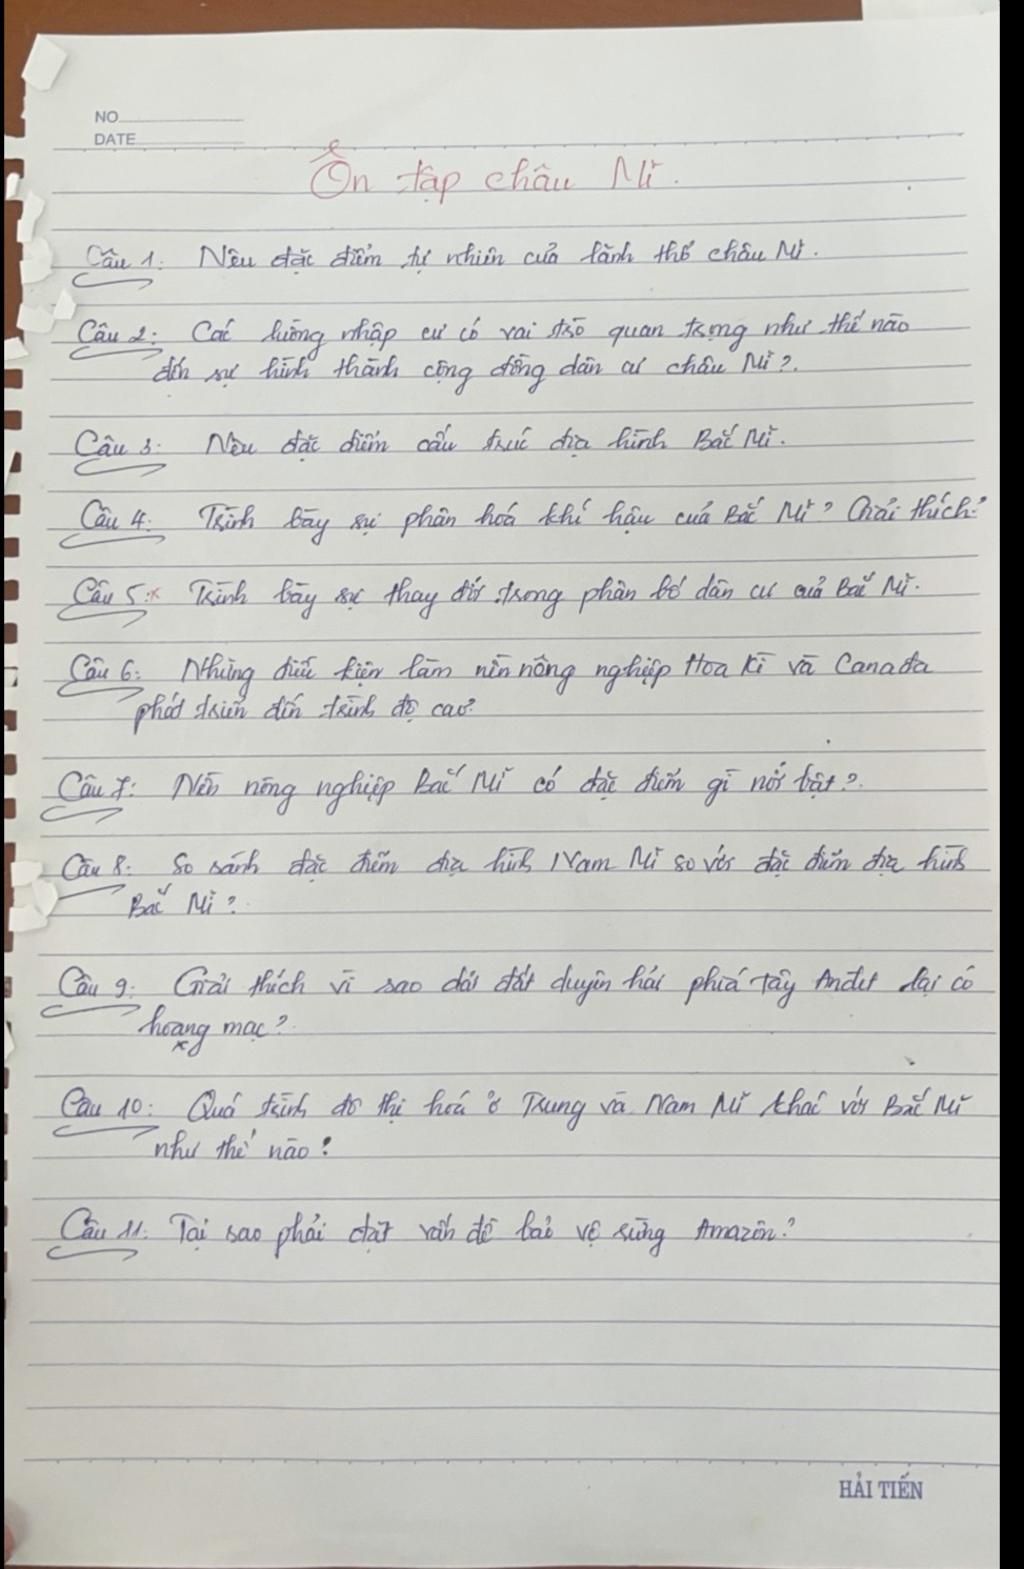 NO
DATE
Ôn tập châu Mĩ.
Câu 1: Nêu đặc điểm tự nhiên của lãnh thổ châu Mĩ.
Câu 2: Các luồng nhập cư có vai trò quan trọng như thế nào
đến sự hình thành cộng đồng dân cư châu Mĩ?.
Câu 3: Nêu đặc điểm cấu trúc địa hình Bắc Mĩ.
Câu 4: Trình bày sự phân hoá khí hậu của Bắc Mĩ? Giải thích?
Câu 5: Trình bày sự thay đổi trong phân bố dân cư của Bắc Mĩ.
Câu 6: Những điều kiện làm nền nông nghiệp Hoa Kì và Canada
phát triển đến trình độ cao?
Câu 7: Nền nông nghiệp Bắc Mĩ có đặc điểm gì nổi bật?.
Câu 8: So sánh đặc điểm địa hình Nam Mĩ so với đặc điểm địa hình
Bắc Mĩ?
Câu 9: Giải thích vì sao dải đất duyên hải phía Tây Anđet lại có
hoang mạc?
Câu 10: Quá trình đô thị hoá ở Trung và Nam Mĩ khác với Bắc Mĩ
như thế nào?
Câu 11: Tại sao phải đặt vấn đề bảo vệ rừng Amazôn?
HẢI TIẾN